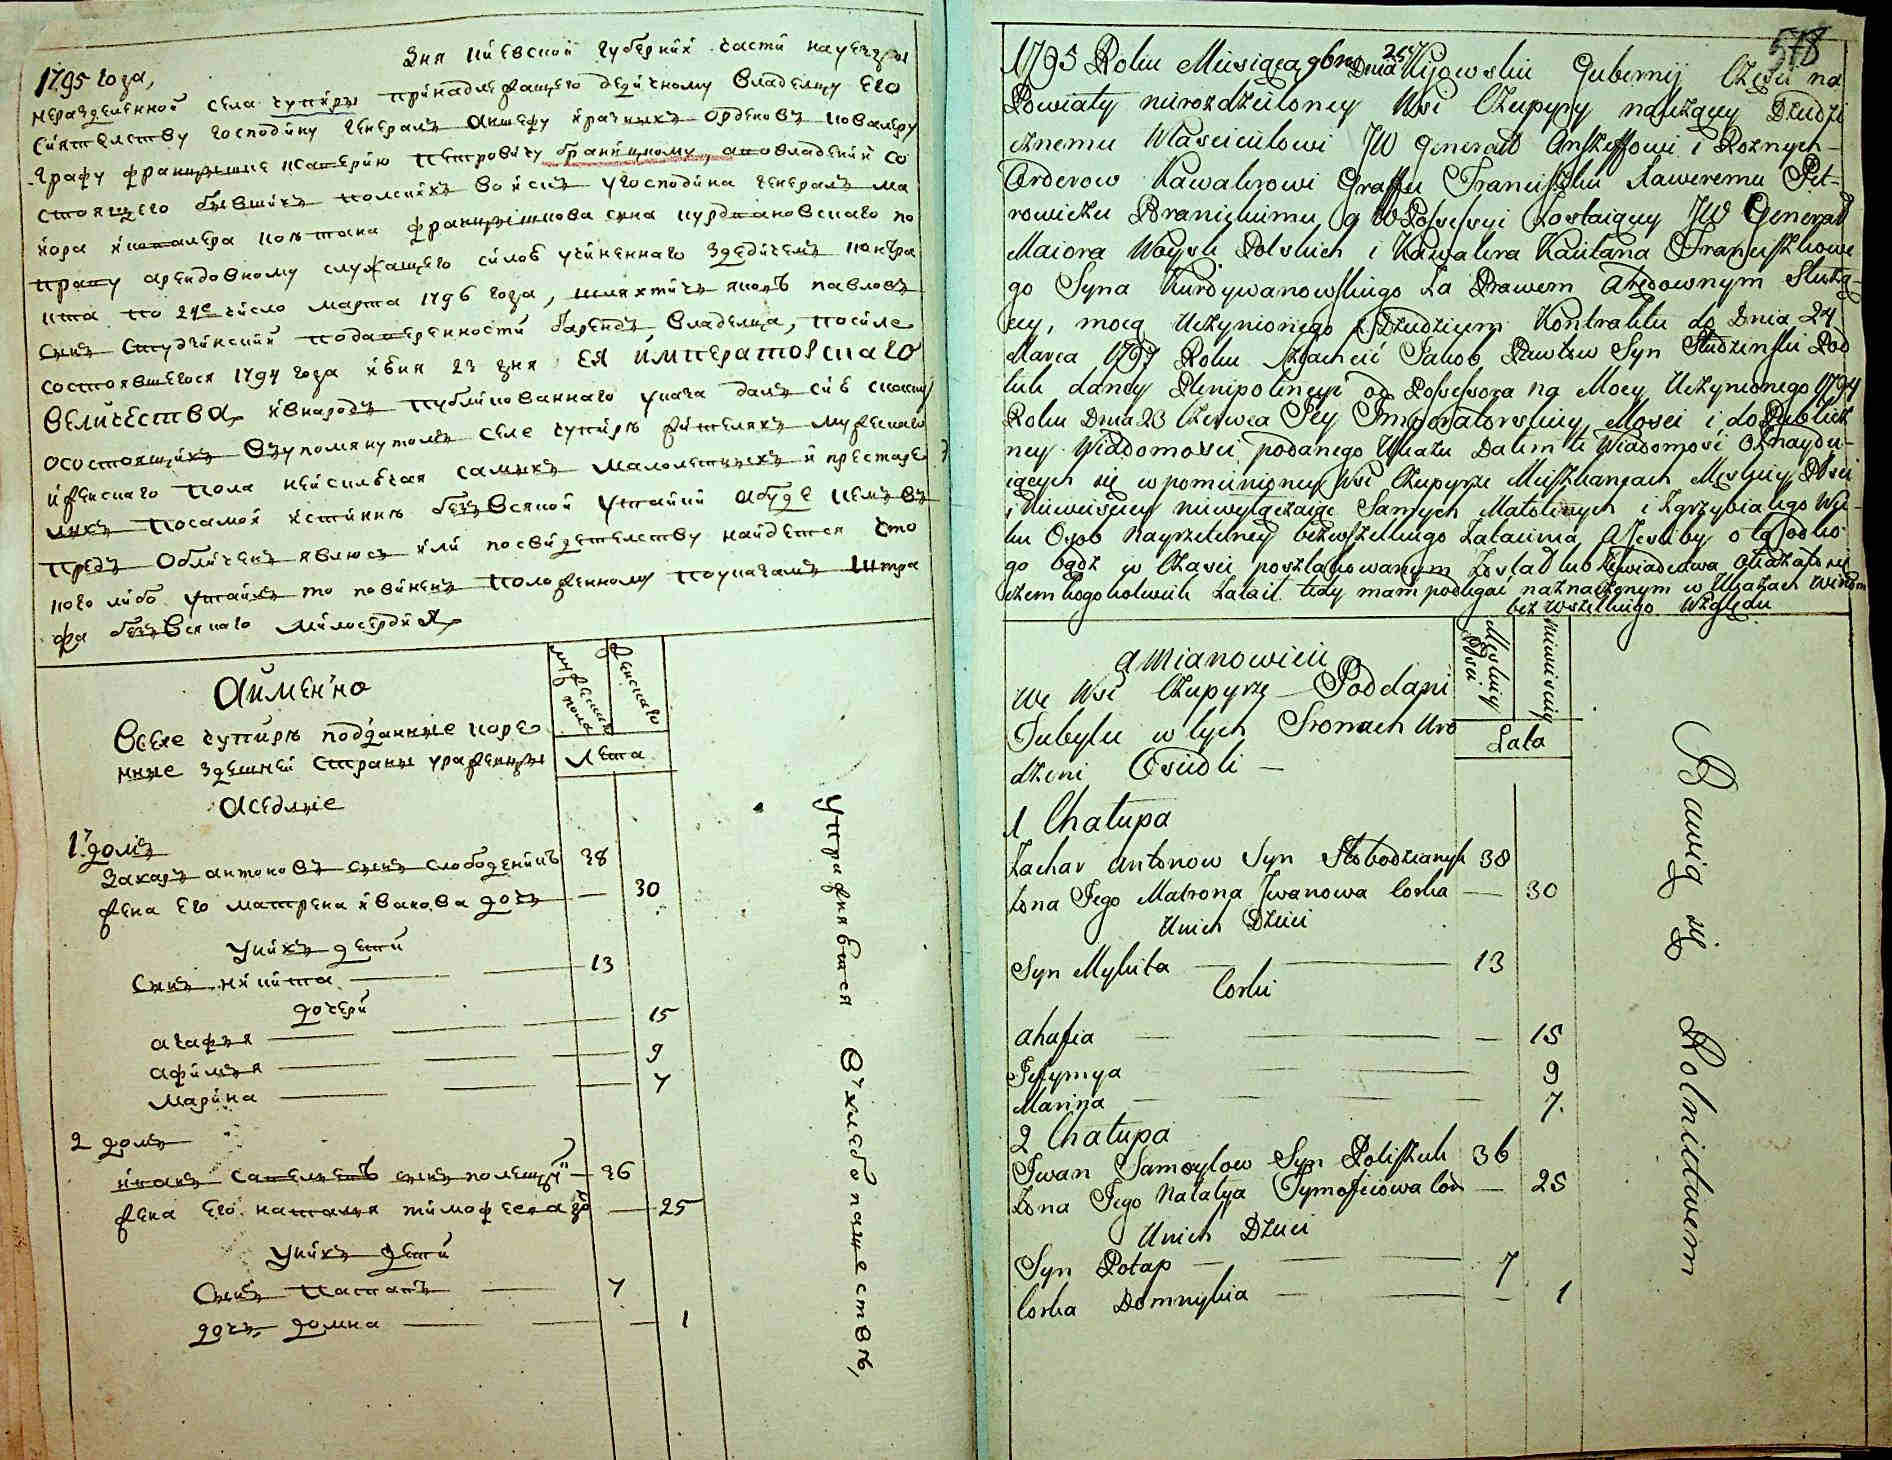 1795 года, дня Киевской губернии части на уезды
неразделенной села Чупиры принадлежащего дедичному владелцу его
сиятелству господину генералъ аншефу и разныхъ орденовъ кавалеру
графу Францишке Ксаверию Петровичу Браницкому, а во владении со
стоящего бывшихъ полскихъ войскъ у господина генералъ ма
иора и кавалера каштана Францишкова сына Курдвановскаго по
праву арендовному служащего силою учиненнаго з дедичемъ контра
кта по 24е число марта 1796 года, шляхтичъ Яковъ Павловъ
сынъ Студзинский по доверенности
состоявшегося 1794 года июня 23 дня ЕЯ ИМПЕРАТОРСКАГО
ВЕЛИЧЕСТВА, и в народъ публикованнаго указа далъ сию скаску
о состоящихъ в вупомянутомъ селе Чупирѣ жителяхъ мужескаго
и женскаго пола не изключая самыхъ малолетныхъ и престаре
лыхъ по самой истиннѣ безъ всякой утайки а буде кемъ въ
предь обличенъ явлюсь или по свидетелству найдется что
кого либо утаилъ то повиненъ положенному по указамъ штра
фа безъ всякаго милосердия
Аименно
Вселе Чупирѣ подданные коре
нные здешней страны урожденцы
аседлые
мужеска пола
женскаго
Лета
1й домъ
Захаръ Антоновъ сынъ Слободеникъ 38
жена его Матрена Иванова дочь — 30
У нихъ дети
сынъ Никита — 13
дочери
Агафья — 15
Афимья — 9
Марина — 7
2 домъ
Иванъ Самойловъ сынъ Полещукъ — 36
жена его Наталья Тимофеева до — 25
У нихъ дети
Сынъ Патапъ — 7
дочь Домна — 1
Упражняются в хлебопашествѣ,
578
1795 Roku Miesiąca 9bra Dnia 25 Kijowskiey Gubernij Części na
Powiaty nierozdzieloney Wsi Czupyry należący Dziedzi
cznemu Właścicielowi JW Generał Anszeffowi i Roznych
Orderow Kawalerowi Graffu Franciszku Xaweremu Pet-
rowiczu Branickiemu a w Possessyi Zostaiący JW Generał
Maiora Woysk Polskich i Kawalera Kasztana Franciszkowe
go Syna Kurdywanowskiego za Prawem Arędownym służą-
cy, mocą Uczynionego z Dziedzicem Kontraktu do Dnia 24
Marca 1797 Roku Szlachcić Jakob Pawłow Syn Studzinski Pod
łuk daney Plenipotencyi od Possessora na Mocy Uczynionego 1794
Roku Dnia 23 Czerwca Jey Imperatorskiey Mosci i do Publicz
ney Wiadomosci podanego Ukazu Dałem tę Wiadomosc o znaydu-
iących się w pomienioney Wsi Czupyrze Mieszkancach Męskiey Płci
i Niewiesciey niewyłączaiąc Samych Małoletnich i Zgrzybiałego Wie-
ku Osob nayrzetelney bez wszelkiego Zataienia A Jesliby o tą od ko
go bądz w Czasie poszlakowanym Został lub Zaswiadectwa okazało się
żem kogo kolwiek Zataił tedy mam podlegać naznaczonym w Ukazach winom
bez wszelkiego Względu
a mianowicie
We Wsi Czupyrze Poddani
Tubylcy w tych Stronach Uro
dzeni Osiedli —
Męskiey Płci
Niewiesciey
Lata
1 Chałupa
Zachar Antonow Syn Słobodzianyk 38
Żona Jego Matrona Jwanowa Corka — 30
U nich Dzieci
Syn Mykita — 13
Corki
Ahafia — 15
Jefymya — 9
Marina — 7.
2 Chałupa
Jwan Samoyłow Syn Poliszuk 36
Żona Jego Natalya Tymofieiowa Cor — 25
U nich Dzieci
Syn Potap — 7
Corka Domnykia — 1
Bawią się Rolnictwem